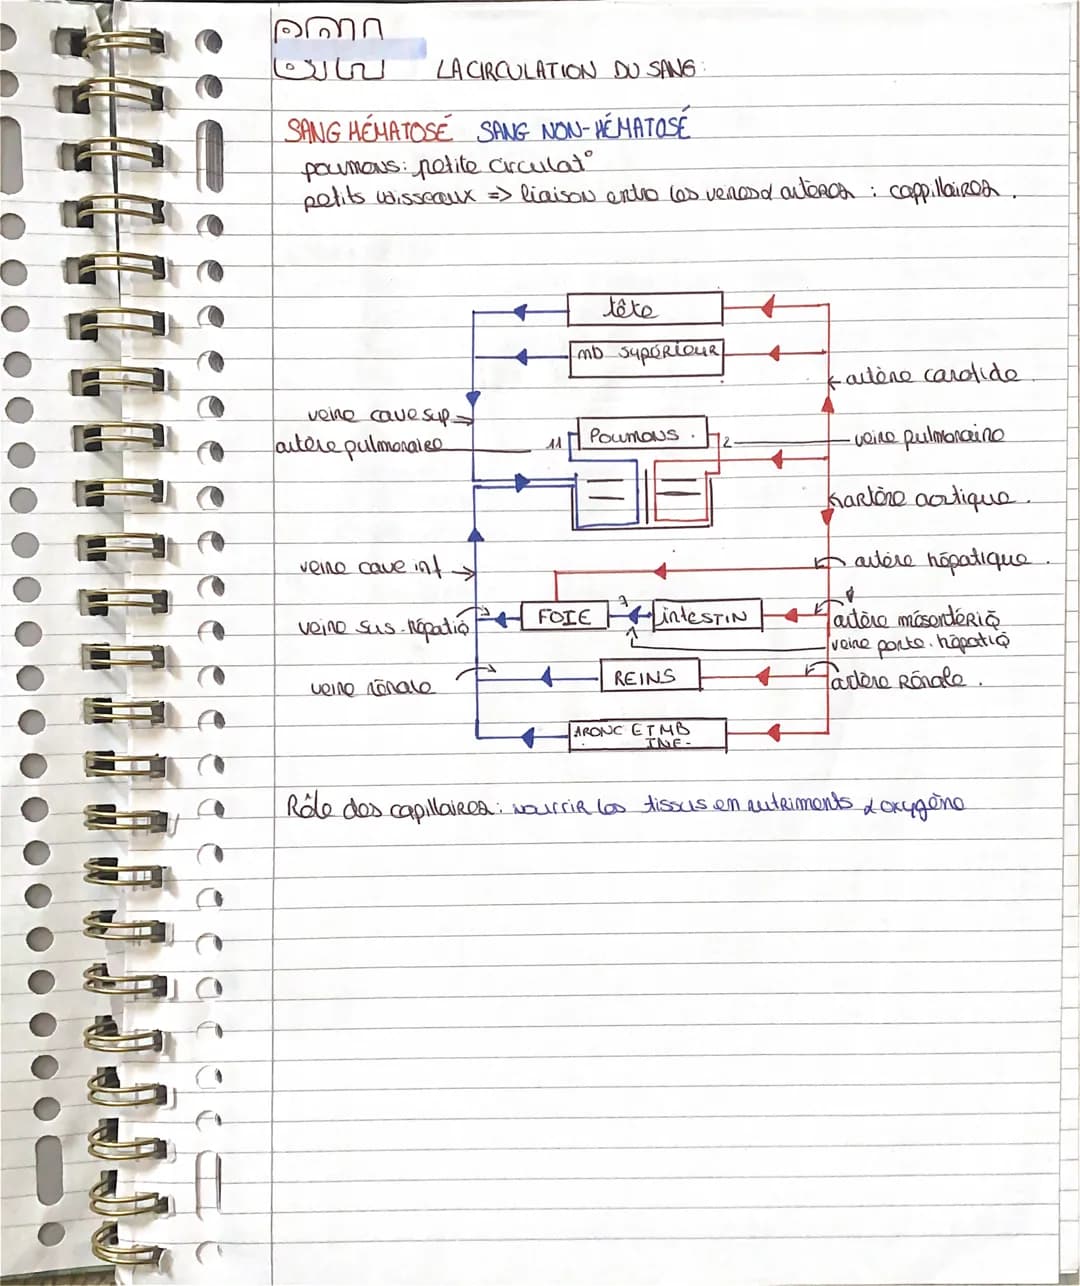 LA CIRCULATION DU SANG:
SANG HÉMATOSÉ SANG NON-HÉMATOSÉ
poumons: petite circulat°
petits vaisseaux => liaison entre les veines & artères : cappillaires.
tête
mb supérieur
← artère carotide
veine cave sup →
Poumons.
11
2
veine pulmonaire
artère pulmonaire
artère aortique.
veine cave inf →
artère hépatique.
FOIE
intESTIN
artère mésentériq
veine sus-hépatiq
veine porte. hépatiq
REINS
veine rénale
artère Rénale.
TRONC ET MB
INF-
Rôle des capillaires: nourrir les tissus en nutriments & oxygène